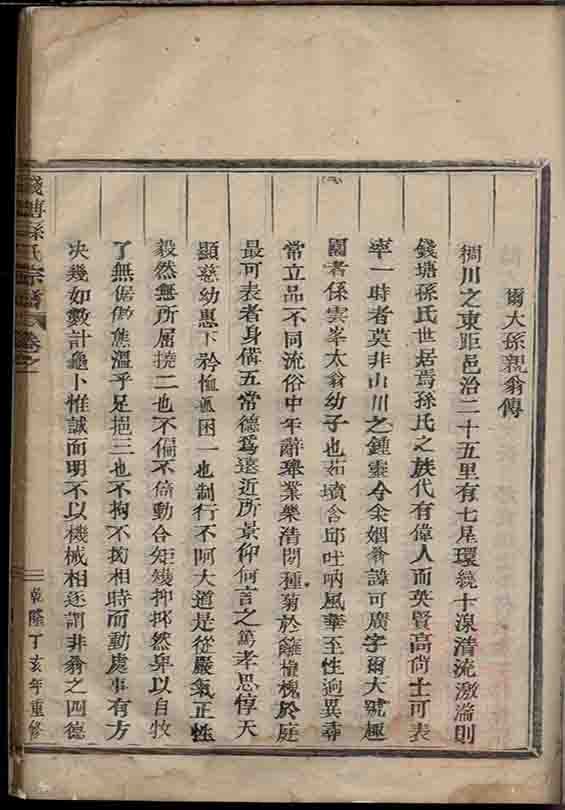 爾大孫親翁傳
稠川之東距邑治二十五里有七星環繞十湶清流激湍則
錢塘孫氏世居焉孫氏之族代有偉人而英賢高尚士可表
率一時者莫非山川之鍾靈今余姻翁諱可廣字爾大號趣
園者係雲峯太翁幼子也茹墳含邱吐吶風華至性迥異尋
常立品不同流俗中年辭舉業樂清閒種菊於籬植槐於庭
最可表者身備五常德爲遠近所景仰何言之篤孝思惇天
顯慈幼惠下矜恤孤困一也制行不阿大道是從嚴氣正性
毅然無所屈撓二也不偏不倚動合矩矱抑抑然卑以自牧
了無倨傲焦溫乎足挹三也不拘不拗相時而動處事有方
决幾如數計龜卜惟誠而明不以機械相逐謂非翁之四德
錢塘孫氏宗譜 卷之
乾隆丁亥年重修